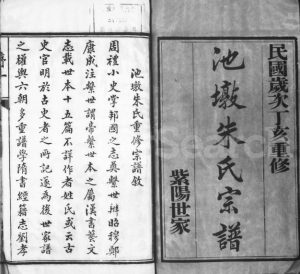 民國歲次丁亥重修
池墩朱氏宗譜
紫陽世家
池墩朱氏重修宗譜敘
周禮小史掌邦國之志奠繫世辨昭穆鄭
康成注繫世謂帝繫世本之屬漢書藝文
志載世本十五篇不詳作者姓氏或云古
史官明於古史者之所記遂為後世家譜
之權輿六朝多重譜學隋書經籍志劉孝